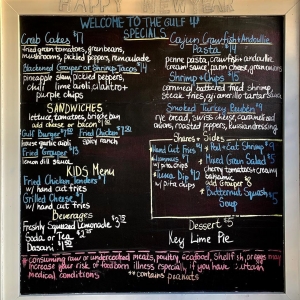 HAPPY
WELCOME TO THE GULF
SPECIALS
Crab Cakes $7
fried green tomatoes, green beans,
mushrooms, pickled peppers, remoulade
Blackened Grouper or Shrimp Tacos $14
pineapple slaw, pickled peppers,
chili lime aioli, cilantro +
purple chips
SANDWICHES
lettuce, tomatoes, bright bun
add cheese or bacon
Gulf Burger Fried Chicken
house garlic aioli spicy ranch
Fried Grouper $13
lemon dill sauce
KIDS Menu
Fried Chicken Tenders
w/ hand cut fries
Grilled Cheese $7
w/ hand cut fries
Beverages
Freshly Squeezed Lemonade
Soda or Tea
Dasani
Cajun Crawfish + Andouille
Pasta $14
penne pasta, crawfish + andouille
cream sauce, parm cheese, green onions
Shrimp + Chips $15
cornmeal battered fried shrimp,
steak fries, tartar sauce
Smoked Turkey Reuben $9
rye bread, swiss cheese, caramelized
onion, roasted peppers, russian dressing
Shares + Sides
Hand Cut Fries $4
+ Hummus
w/ pita chips
+ Dip
w/ pita chips
+ Peel + Eat Shrimp $9
+ Mixed Green Salad $5
cherry tomatoes, creamy
balsamic
add Grouper 8
+ Butternut Squash
Soup
Dessert $5
Key Lime Pie
* consuming raw or undercooked meats, poultry, seafood, shellfish, or eggs may
increase your risk of foodborn illness especially if you have certain
medical conditions ** contains peanuts